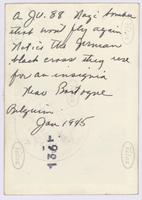 A JU. 88 Nazi bomber
that won't fly again
Notice the German
black cross they use
for an insignia
Near Bastogne
Belguim.
Jan 1945
1991